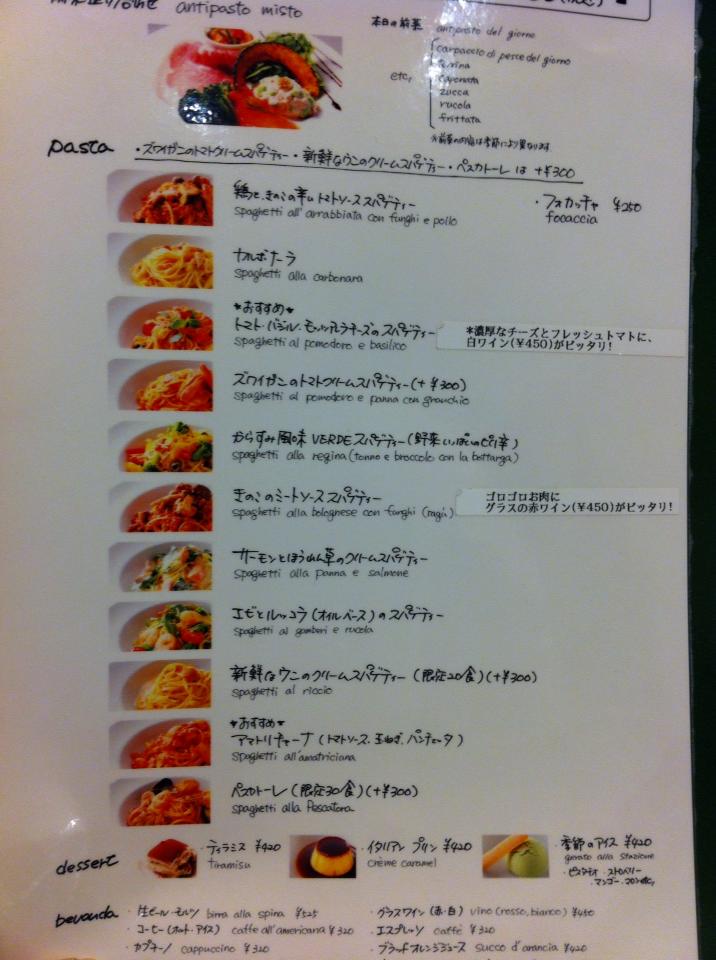 antipasto misto
本日の前菜
antipasto del giorno
etc,
carpaccio di pesce del giorno
caponata
zucca
rucola
frittata
※前菜の内容は季節により異なります
pasta
・ズワイガニのトマトクリームスパゲティー・新鮮なウニのクリームスパゲティー・ペスカトーレ は +¥300
鶏ときのこの辛いトマトソーススパゲティー
spaghetti all'arrabbiata con funghi e pollo
・フォカッチャ ¥250
focaccia
カルボナーラ
spaghetti alla carbonara
★おすすめ★
トマト・バジル・モッツァレラチーズのスパゲティー
spaghetti al pomodoro e basilico
*濃厚なチーズとフレッシュトマトに、
白ワイン(¥450)がピッタリ!
ズワイガニのトマトクリームスパゲティー(+¥300)
spaghetti al pomodoro e panna con granchio
からすみ風味 VERDEスパゲティー(野菜いっぱいのピリ辛)
spaghetti alla regina (tonno e broccolo con la bottarga)
きのこのミートソーススパゲティー
spaghetti alla bolognese con funghi (ragù)
ゴロゴロお肉に
グラスの赤ワイン(¥450)がピッタリ!
サーモンとほうれん草のクリームスパゲティー
spaghetti alla panna e salmone
エビとルッコラ(オイルベース)のスパゲティー
spaghetti al gamberi e rucola
新鮮なウニのクリームスパゲティー (限定20食)(+¥300)
spaghetti al riccio
★おすすめ★
アマトリチャーナ (トマトソース、玉ねぎ、パンチェッタ)
spaghetti all'amatriciana
ペスカトーレ (限定30食)(+¥300)
spaghetti alla Pescatora
dessert
・ティラミス ¥420
tiramisu
・イタリアン プリン ¥420
crème caramel
・季節のアイス ¥420
gerato alla stazione
・ピスタチオ・ストロベリー
・マンゴー・マロンetc,
bevanda
・生ビール・モルツ birra alla spina ¥525
・グラスワイン (赤・白) vino (rosso, bianco) ¥450
・コーヒー (ホット・アイス) caffe all'americana ¥320
・エスプレッソ caffè ¥320
・カプチーノ cappuccino ¥320
・ブラッドオレンジジュース succo d'arancia ¥420